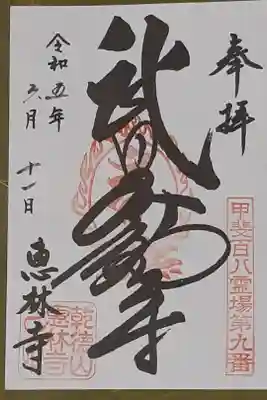 奉拝
甲斐百八霊場第九番
武田不動尊
令和五年
六月
十一日
恵林寺
乾徳山
恵林寺